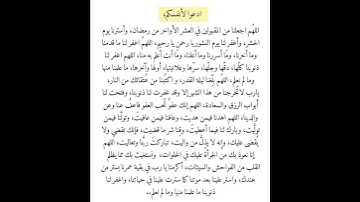 ادعوا لأنفسكم:
اللهُم اجعلنا من المقبولين في العشر الأواخر من رمضان، وأسترنا يوم
الحشر، وأغفر لنا يوم النشور يا رحمن يا رحيم، اللهم اغفر لنا ما قدمنا
وما أخرنا، وما أسررنا وما أعلنا، وما أنت أعلم به منا، اللهم اغفر لنا
ذنوبنا كلها، دقها وجلها، سرها وعلانيتها، أولها وآخرها، ما علمنا منها
وما لم نعلم، اللهم بلغنا ليلة القدر، و اكتبنا من عتقائك من النار،
يارب لا تُخرجنا من هذا الشهر إلا وقد غفرت لنا ذنوبنا، وفتحت لنا
أبواب الرزق والسعادة، اللهم إنك عفوٌ تُحب العفو فاعفُ عنا وعن
والدينا، اللهم اهدنا فيمن هديت، وعافنا فيمن عافيت، وتولنا فيمن
توليت، وبارك لنا فيما أعطيت، وقنا شر ما قضيت، فإنك تقضي ولا
يقضى عليك، وانه لا يذل من واليت، تباركت ربنا وتعاليت، اللهم
إنا نعوذ بك من الجرأة عليك في الخلوات، ونستغيث بك مما يظلم
القلب من الفواحش والسيئات، أكرمنا يا رب في بقية عمرنا بستر من
عندك، واسترعلينا بعد موتنا كما سترت علينا في حياتنا، واغفر لنا
ذنوبنا ما علمنا منها وما لم نعلم..